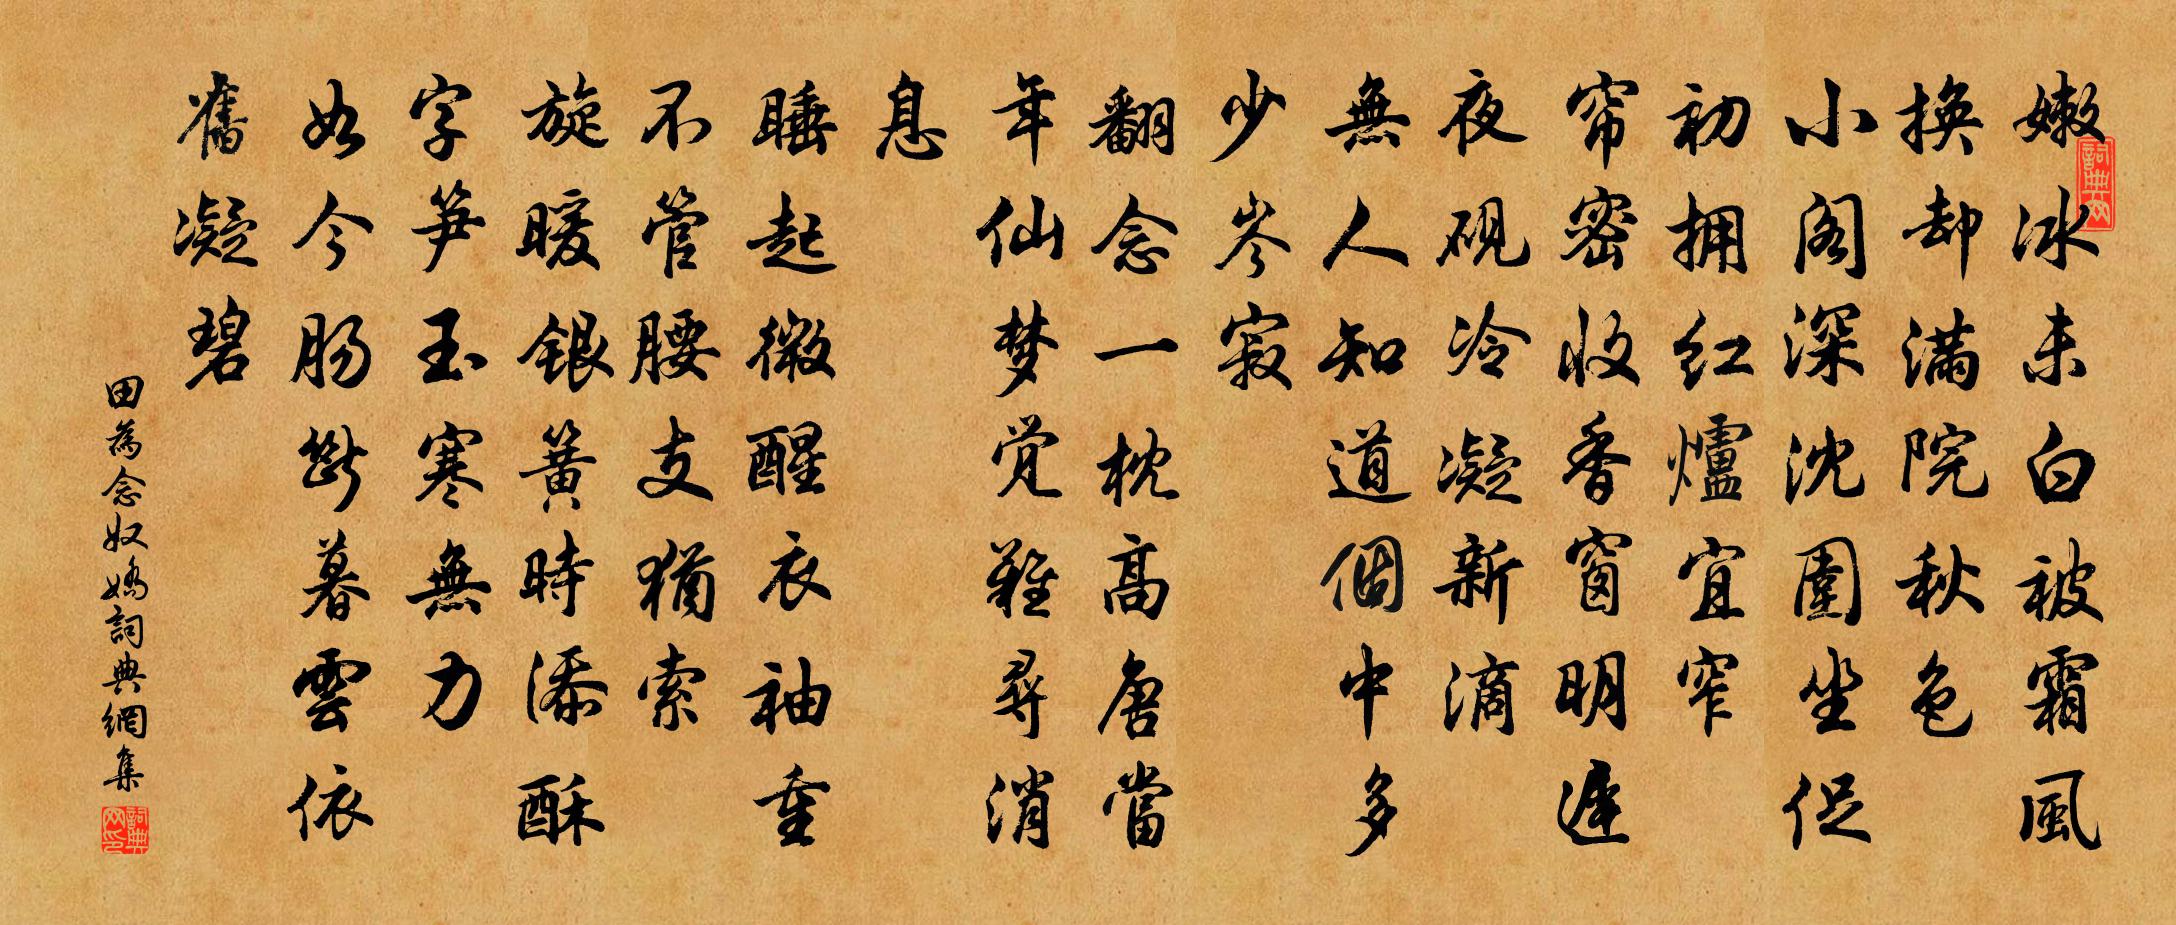 嫩冰未白被霜風
換却满院秋色
小阁深沈圍坐促
初拥红爐宜窄
帘密收香窗明遲
夜砚冷凝新滴
無人知道個中多
少岑寂
翻念一枕高唐當
年仙梦觉難尋消
息
睡起微醒衣袖重
不管腰支猶索
旋暖銀簧時添酥
字笋玉寒無力
如今肠斷暮雲依
舊凝碧
田為念奴嬌詞典網集
詞典网
詞典网印